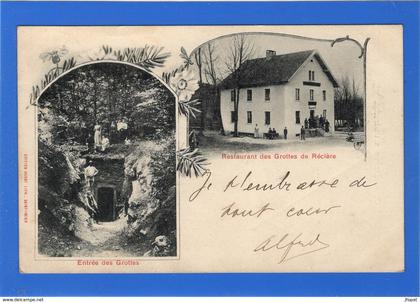 Restaurant des Grottes de Réclère
Je t'embrasse de
tout coeur
Alfred
Entrée des Grottes